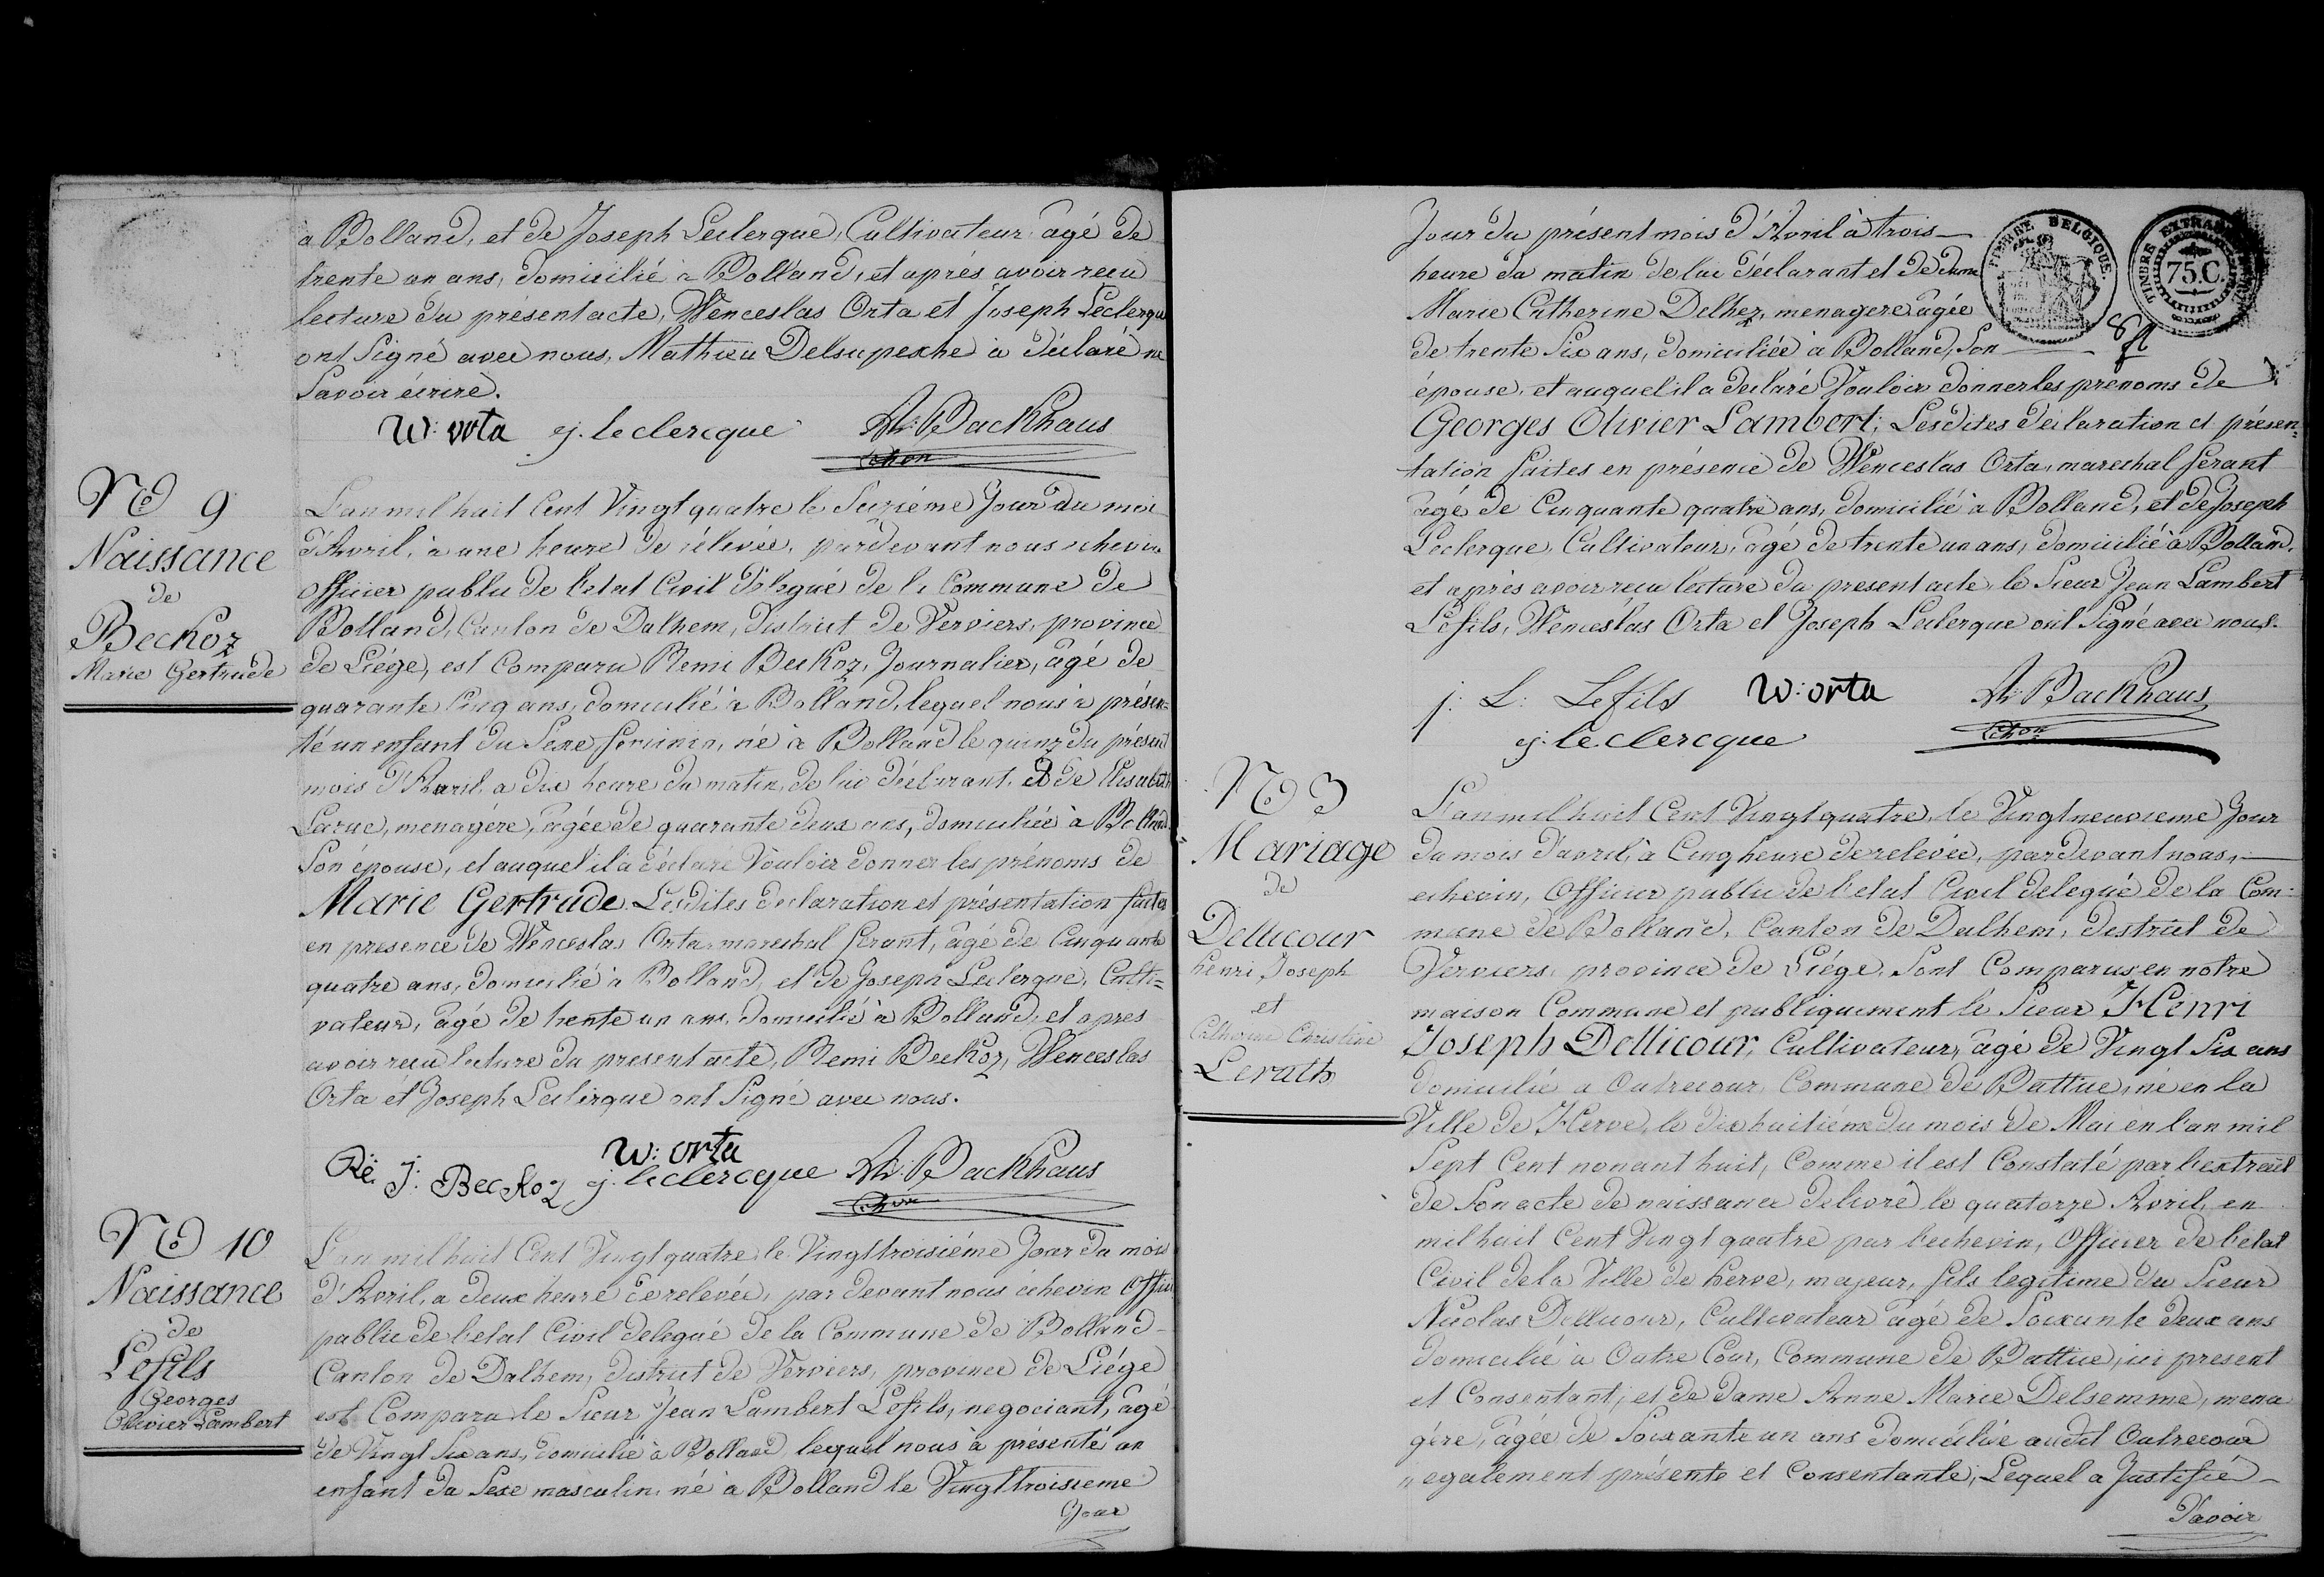 à Bolland, et de Joseph Leclerque, Cultivateur âgé de
trente un ans, domicilié à Bolland, et aprés avoir reçu
lecture du présent acte, Wenceslas Orta et Joseph Leclerque
ont Signé avec nous, Mathieu Delsupexhe à déclaré ne
Savoir écrire.
W: orta j. leclercque Ar: Backhaus
echon
No 9
Naissance
de
Beckoz
Marie Gertrude
L'an mil huit Cent Vingt quatre le Seizième Jour du moi
d'Avril, à une heure de rélevée, pardevant nous echevin
officier public de l'etat Civil délegué de la Commune de
Bolland, Canton de Dalhem, district de Verviers, province
de Liége, est Comparu Remi Beckoz, Journalier, âgé de
quarante Cinq ans, domicilié à Bolland, lequel nous à présen=
té un enfant du Sexe feminin, né à Bolland le quinz du présent
mois d'Avril, a dix heure du matin, de lui déclarant, et de Elisabeth
Larue, menagére, âgée de quarante deux ans, domiciliée à Bolland
Son épouse, et auquel il à déclaré Vouloir donner les prénoms de
Marie Gertrude. Lesdites declaration et présentation faites
en presence de Wenceslas Orta, mareschal ferant, âgé de Cinquante
quatre ans, domicilié à Bolland, et de Joseph Leclerque, Culti=
vateur, âgé de trente un ans, domicilié à Bolland, et apres
avoir reçu lecture du present acte, Remi Beckoz, Wenceslas
Orta et Joseph Leclerque ont Signé avec nous.
Re. J: Beckoz W: orta j. leclercque Ar: Backhaus
echon
No 10
Naissance
de
Lefils
Georges
Olivier Lambert
L'an mil huit Cent Vingt quatre le Vingt troisiéme Jour du mois
d'Avril, a deux heure de relevée, par devant nous échevin Officier
public de l'etat Civil delegué de la Commune de Bolland
Canton de Dalhem, district de Verviers, province de Liége
est Comparu le Sieur Jean Lambert Lefils, negociant, âgé
de Vingt Six ans, domicilié à Bolland lequel nous à présenté un
enfant du Sexe masculin né à Bolland le Vingt troisieme
Jour
Jour du présent mois d'Avril à trois
heure du matin de lui déclarant et de dame
Marie Catherine Delhez, menagere âgée
de trente Six ans, domiciliée à Bolland, Son
épouse, et auquel il a declaré Vouloir donner les prénoms de
Georges Olivier Lambert; Lesdites déclaration et présen=
tation faites en présence de Wenceslas Orta, mareschal ferant
âgé de Cinquante quatre ans, domicilié à Bolland, et de Joseph
Leclerque, Cultivateur, âgé de trente un ans, domicilié à Bolland,
et après avoir reçu lecture du present acte, le Sieur Jean Lambert
Lefils, Wenceslas Orta et Joseph Leclerque ont Signé avec nous.
TIMBRE BELGIQUE.
TIMBRE EXTRAORD
75.C.
j: L: Lefils W: orta Ar: Backhaus
j. leclercque echon
No 3
Mariage
de
Dellicour
henri Joseph
et
Catherine Christine
Lerath
L'an mil huit Cent Vingt quatre, le Vingt neuvieme Jour
du mois d'avril, à Cinq heure de relevée, pardevant nous,
echevin, Officier public de l'etat Civil delegué de la Com=
mune de Bolland, Canton de Dalhem, district de
Verviers, province de Liége, Sont Comparus en notre
maison Commune et publiquement le Sieur Henri
Joseph Dellicour, Cultivateur, âgé de Vingt Six ans
domicilié a Outrecour, Commune de Battice, né en la
Ville de Herve, le dix huitiéme du mois de Mai en l'an mil
Sept Cent nonant huit, Comme il est Constaté par l'extrait
de Son acte de naissance delivré le quatorze Avril en
mil huit Cent Vingt quatre par l'echevin, Officier de l'etat
Civil de la Ville de herve, majeur, fils legitime du Sieur
Nicolas Dellicour, Cultivateur âgé de Soixante deux ans
domicilié à Outre Cour, Commune de Battice, ici present
et Consentant; et de dame Anne Marie Delsemme, mena
gére, âgée de Soixante un ans domiciliée audit Outrecour
egalement présente et Consentante, Lequel a Justifié
d'avoir